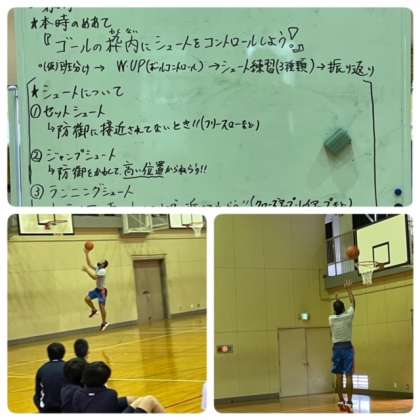 ★本時のめあて
『ゴールの枠内にシュートをコントロールしよう!』
わくない
◦(仮)班分け → W-UP(ボールコントロール) → シュート練習(3種類) → 振り返り
★シュートについて
①セットシュート
↳防御に接近されてないとき!!(フリースローなど)
②ジャンプシュート
↳防御をかわして、高い位置からねらう!!
③ランニングシュート